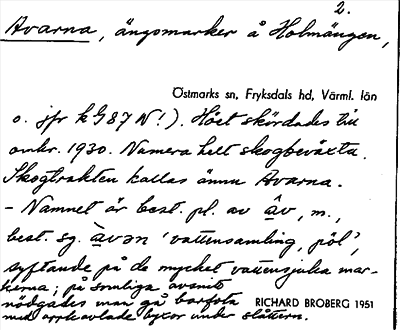 2.
Avarna, ängsmarker å Holmängen,
Östmarks sn, Fryksdals hd, Värml. län
o. jfr k G87 N!). Höet skördades till
omkr. 1930. Numera helt skogbeväxta.
Skogtrakten kallas ännu Avarna.
– Namnet är best. pl. av âv, m.,
best. sg. àvən 'vattensamling, pöl',
syftande på de mycket vattensjuka mar-
kerna; på somliga avsnitt
nödgades man gå barfota
med uppkavlade byxor under slåttern.
RICHARD BROBERG 1951